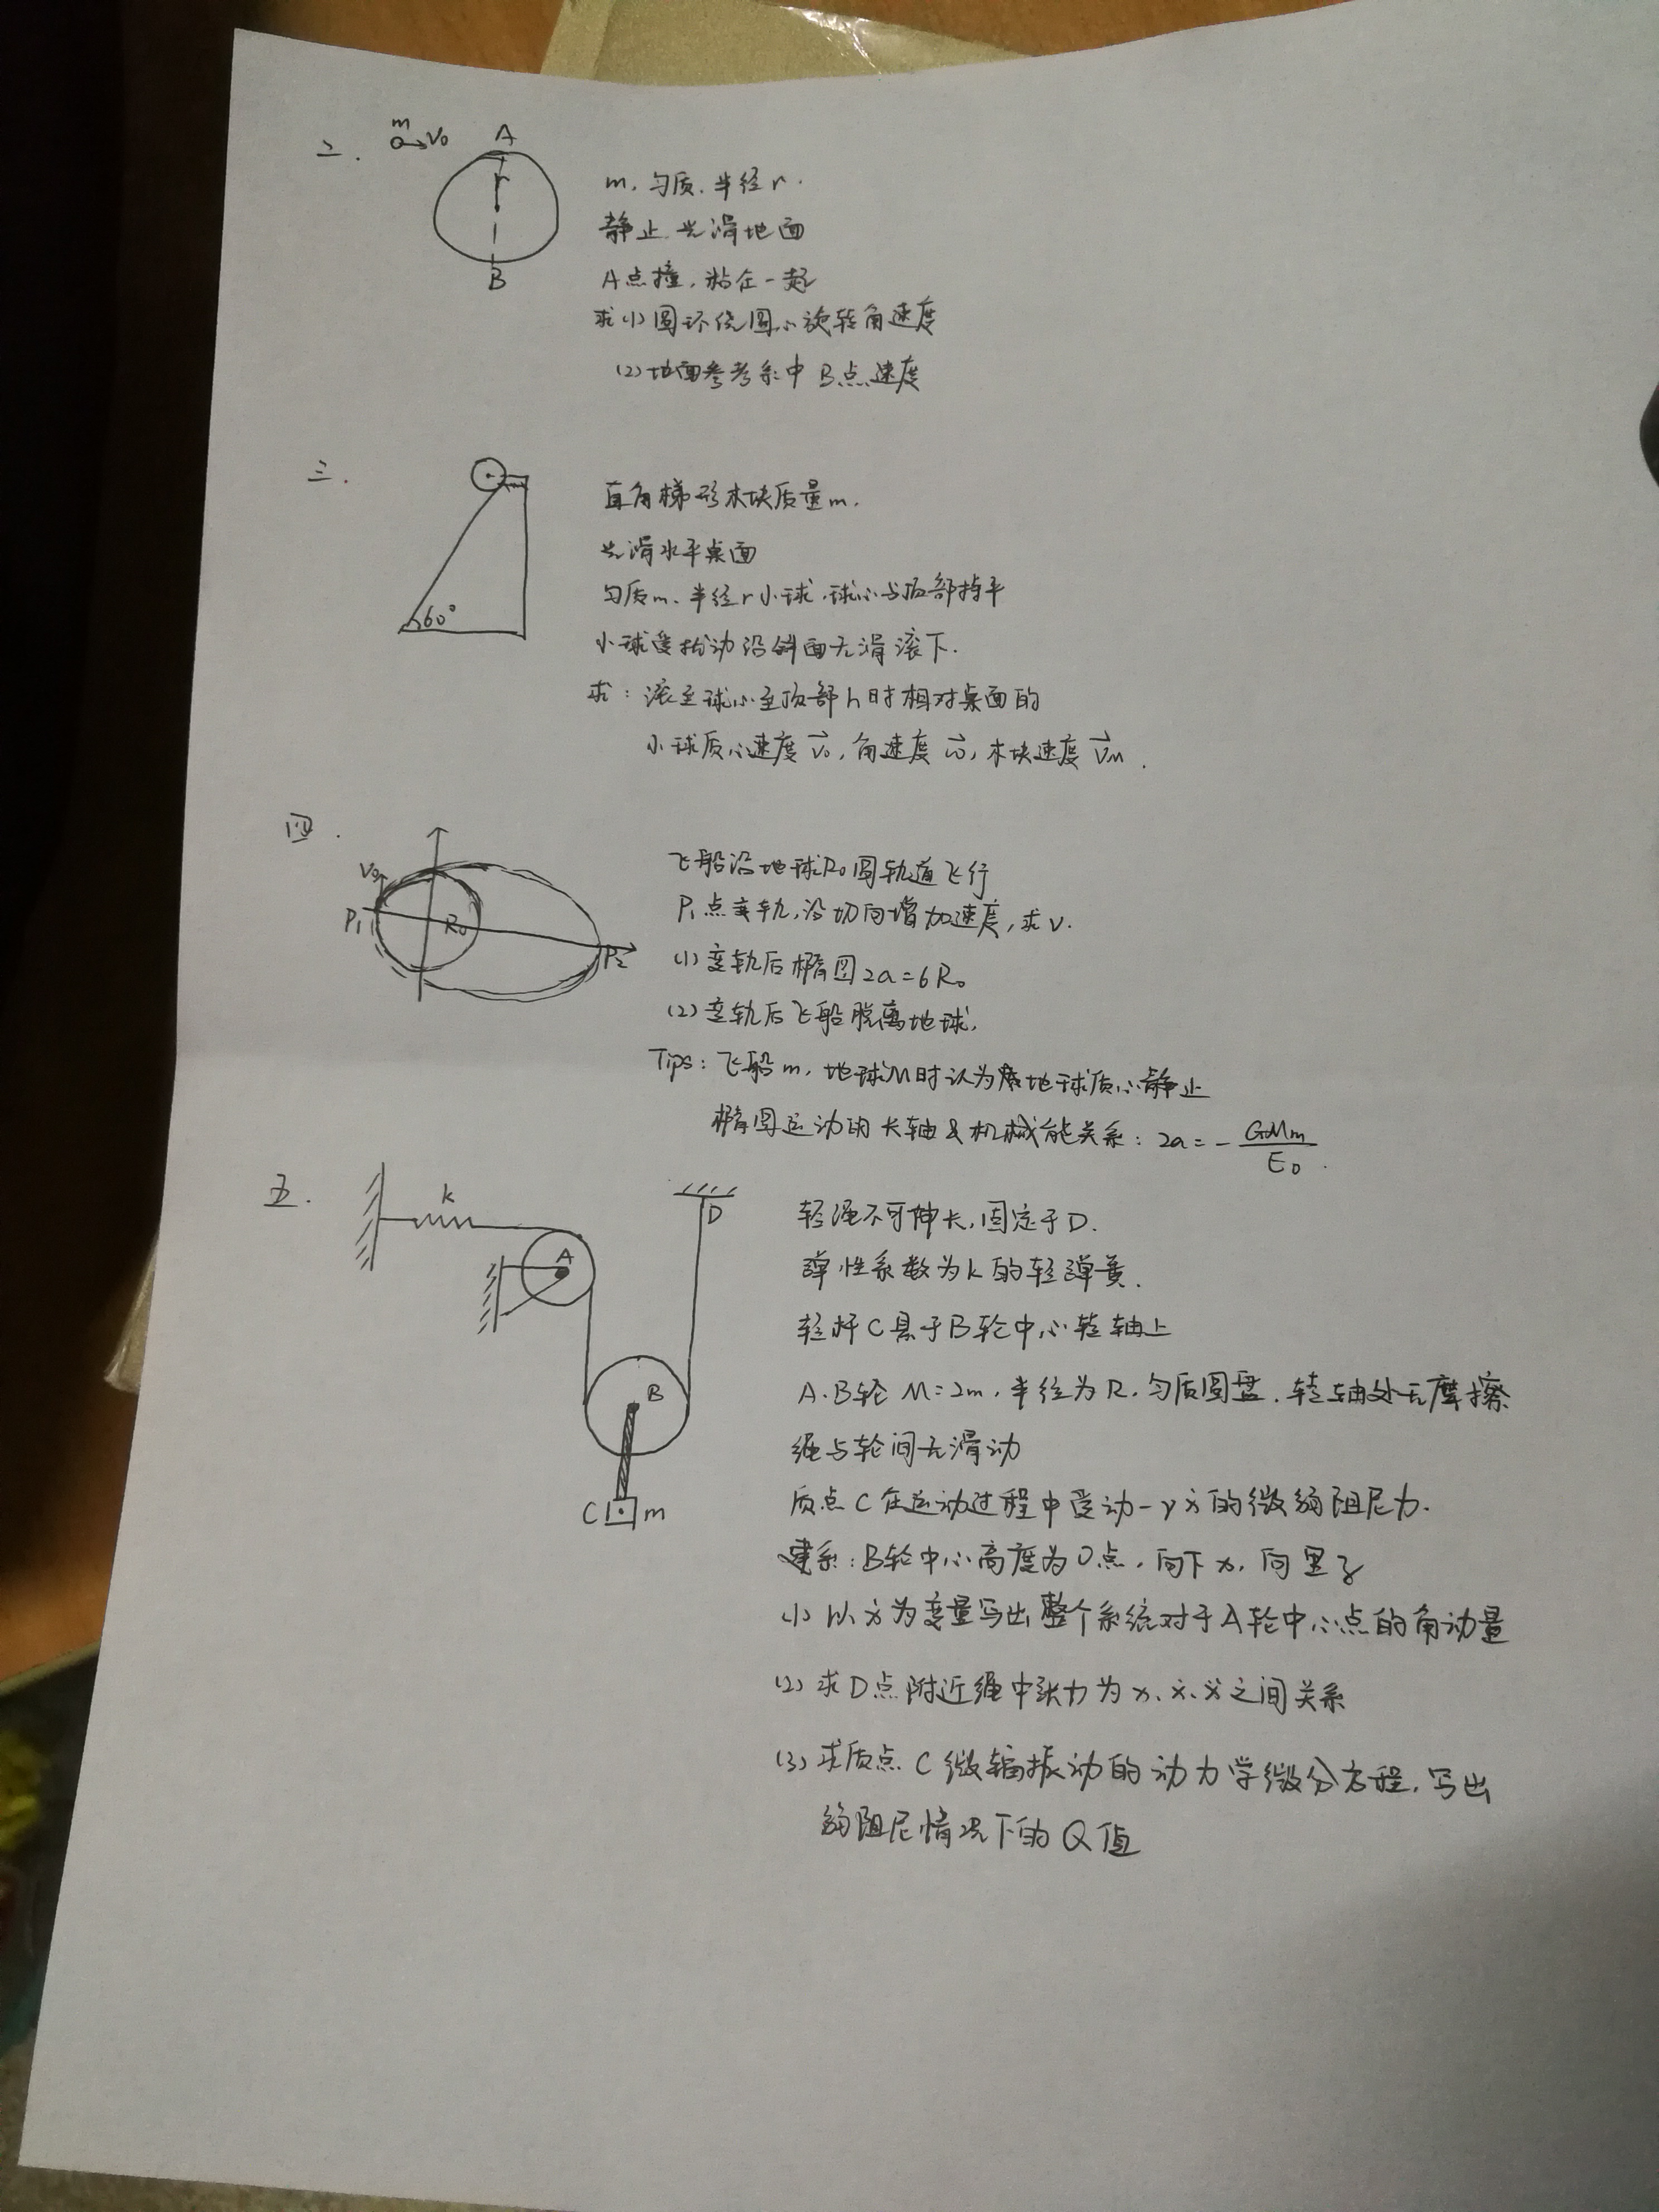 二.
m
v₀
A
r
B
m. 匀质. 半径r.
静止 光滑地面
A点撞, 粘在一起
求(1)圆环绕圆心旋转角速度
(2)地面参考系中B点速度
三.
60°
直角梯形木块质量m.
光滑水平桌面
匀质m、半径r小球,球心与顶部持平
小球受扰动沿斜面无滑滚下.
求: 滚至球心至顶部h时相对桌面的
小球质心速度 v⃗₀, 角速度 ω⃗, 木块速度 v⃗ₘ.
四.
v₀
P₁
R₀
P₂
飞船沿地球R₀圆轨道飞行
P₁点变轨,沿切向增加速度,求v.
(1)变轨后椭圆2a=6R₀
(2)变轨后飞船脱离地球.
Tips: 飞船m, 地球M时认为地球质心静止
椭圆运动的长轴&机械能关系: 2a = - GMm/E₀.
五.
k
A
D
B
C
m
轻绳不可伸长,固定于D.
弹性系数为k的轻弹簧.
轻杆C悬于B轮中心转轴上
A.B轮 M=2m, 半径为R, 匀质圆盘. 转轴处无摩擦
绳与轮间无滑动
质点C在运动过程中受动-γẋ的微弱阻尼力.
建系: B轮中心高度为0点, 向下x, 向里z
(1) 以ẋ为变量写出整个系统对于A轮中心点的角动量
(2) 求D点附近绳中张力为x、ẋ、ẍ之间关系
(3) 求质点C微辐振动的动力学微分方程, 写出
弱阻尼情况下的Q值